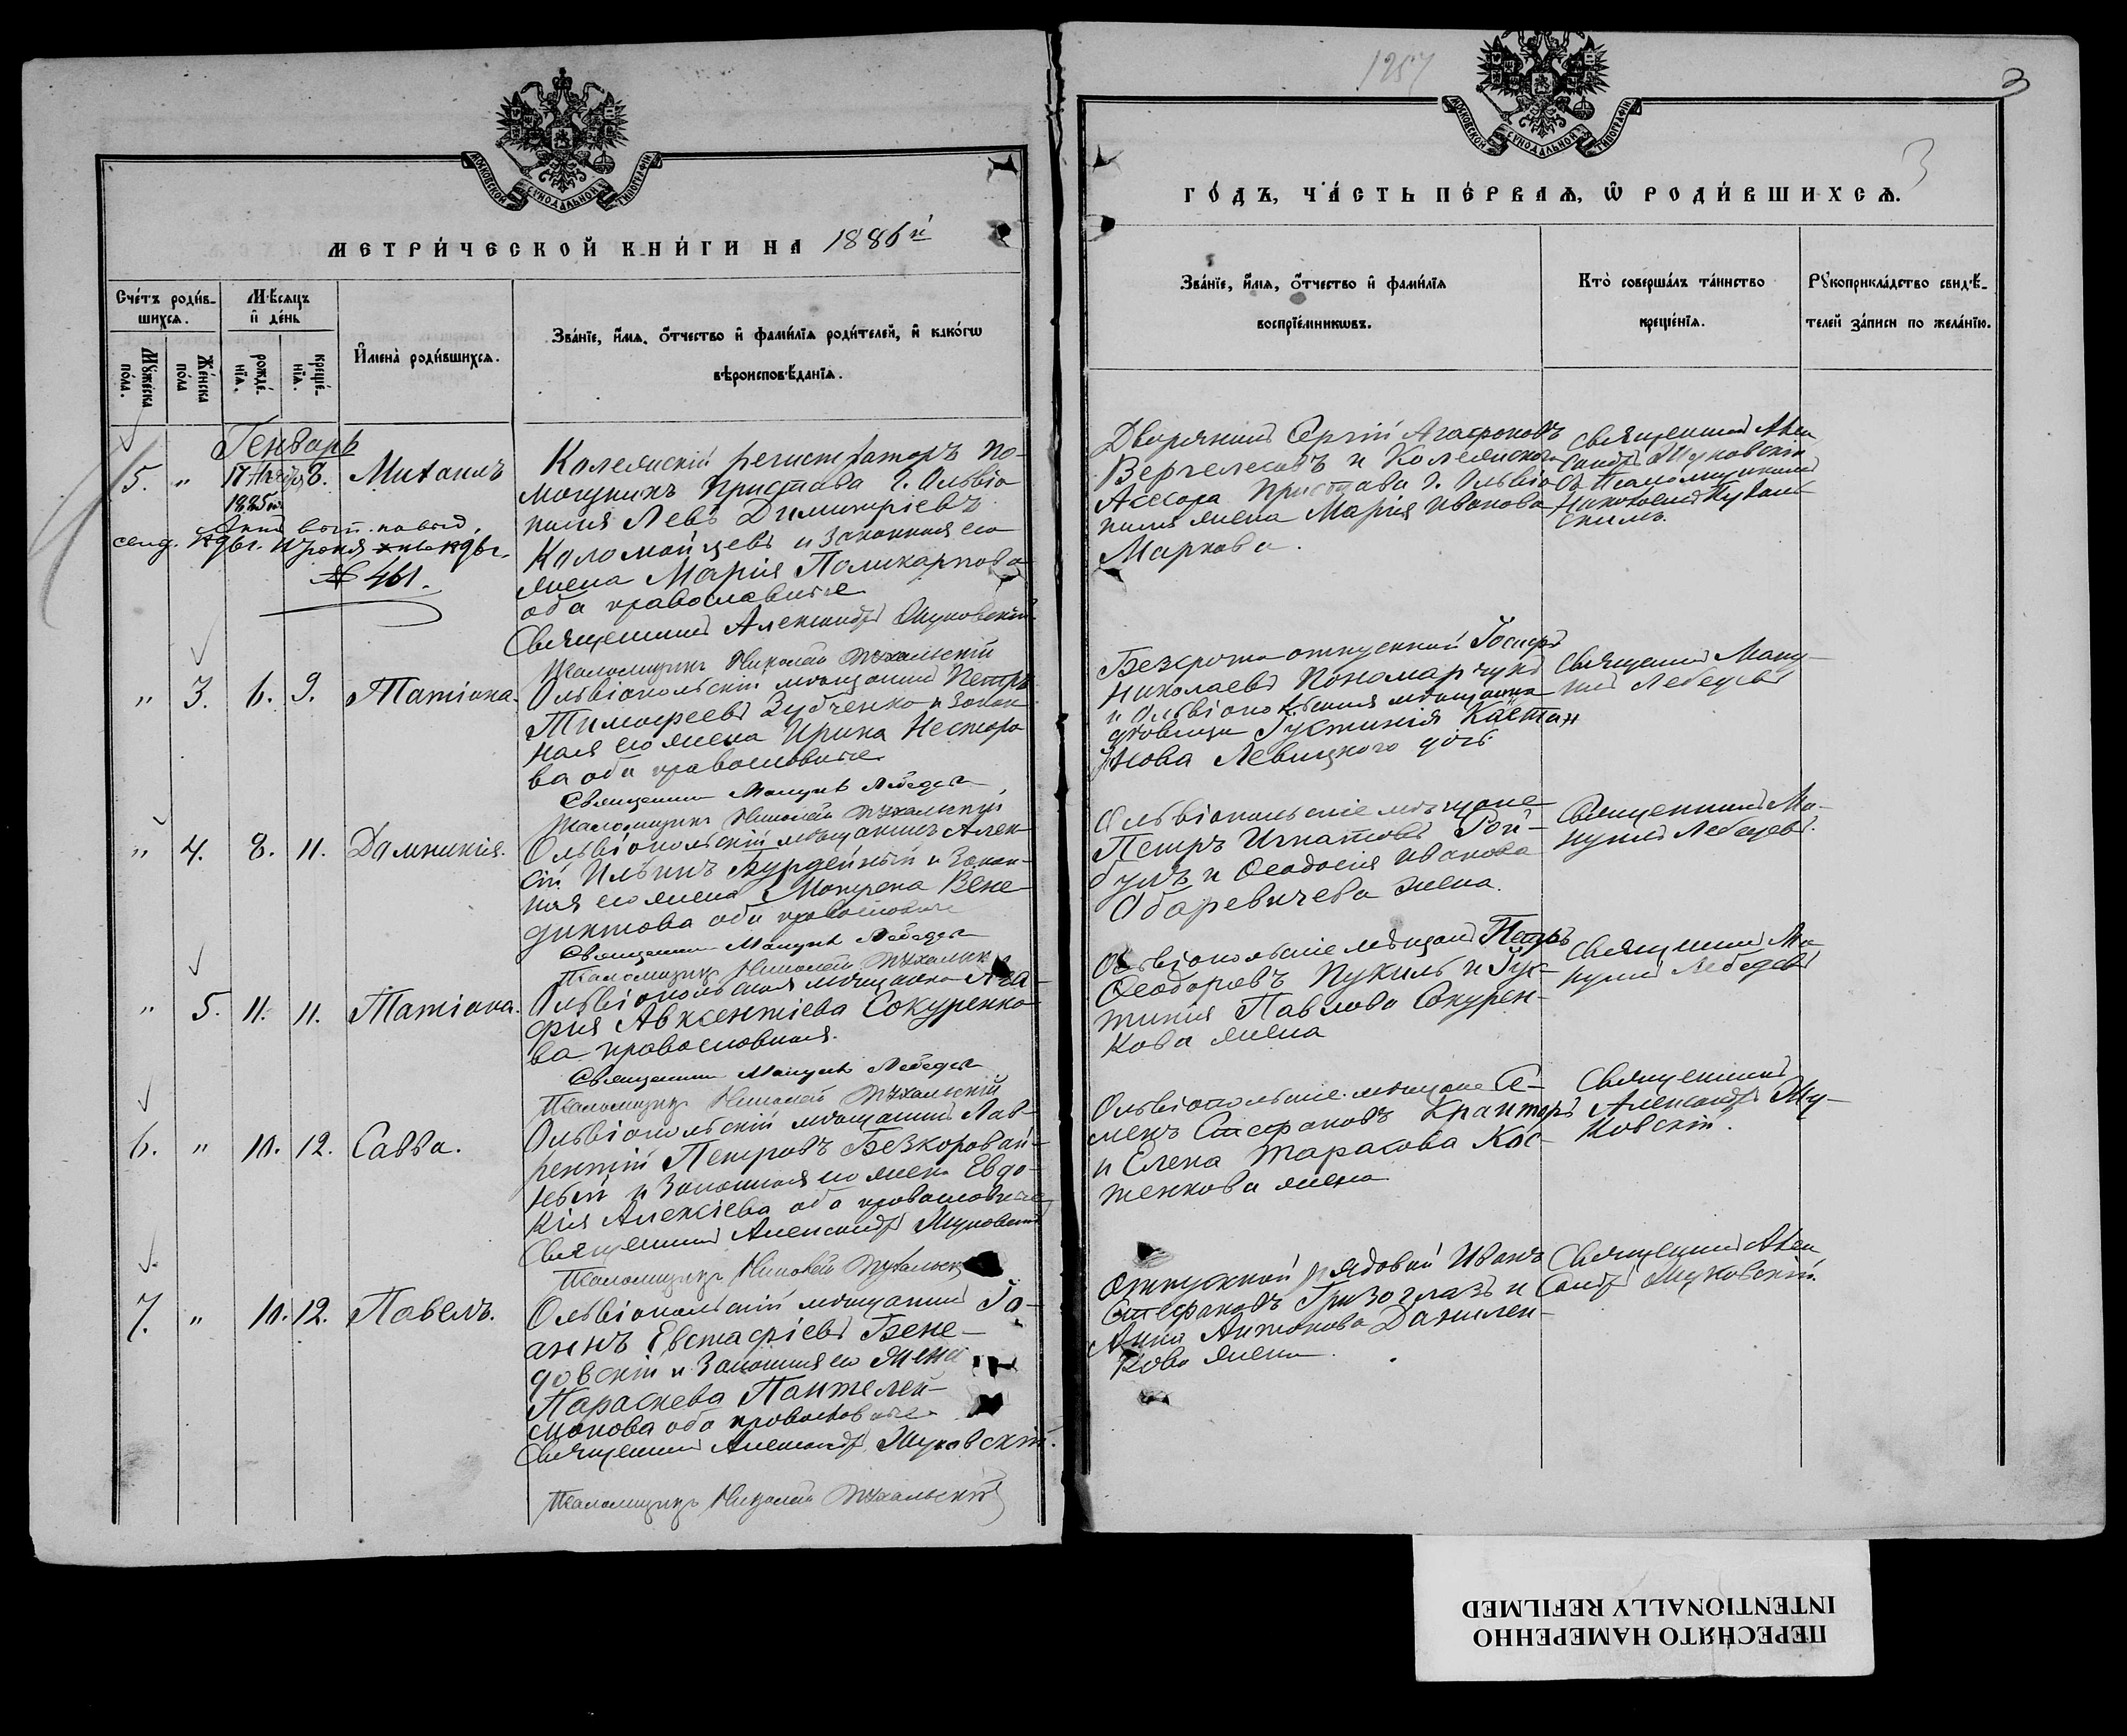 МОСКОВСКОЙ СѴНОДАЛЬНОЙ ТИПОГРАФІИ
МЕТРИ́ЧЕСКОЙ КНИ́ГИ НА 1886й
Сче́тъ роди́в-
шихсѧ.
Мѣ́сѧцъ
и҆ де́нь
Мꙋ́жеска
по́ла.
Же́нска
по́ла
рожде́-
нїѧ.
креще́-
нїѧ.
И҆мена̀ роди́вшихсѧ.
Зва́нїе, и҆́мѧ, ѻ҆́тчество и҆ фами́лїѧ роди́телей, и҆ како́гѡ
вѣроисповѣ́данїѧ.
Генварь
5. " 17 8. Михаилъ
1885
№ 461.
Колежскій регистраторъ по-
мощникъ Пристава г. Ольвіо
поля Левъ Димитріевъ
Коломойцевъ и законная его
жена Марія Поликарпова
оба православные
Священникъ Александръ Жуковскій
Псаломщикъ Николай Пухальскій
" 3. 6. 9. Татіана.
Ольвіопольскій мѣщанинъ Петръ
Тимофеевъ Зубченко и закон
ная его жена Ирина Несторо
ва оба православные
Священникъ Мануилъ Лебедевъ
Псаломщикъ Николай Пухальскій
" 4. 8. 11. Домникія.
Ольвіопольскій мѣщанинъ Алек-
сій Ильинъ Бурдейный и закон-
ная его жена Мокрена Вене-
диктова оба православные
Священникъ Мануилъ Лебедевъ
Псаломщикъ Николай Пухальскій
" 5. 11. 11. Татіана.
Ольвіопольская мѣщанка Ага-
фія Авксентіева Сокуренко-
ва православная.
Священникъ Мануилъ Лебедевъ
Псаломщикъ Николай Пухальскій
6. " 10. 12. Савва.
Ольвіопольскій мѣщанинъ Лав-
рентій Петровъ Безкоровай-
ный и законная его жена Евдо-
кія Алексіева оба православные
Священникъ Александръ Жуковскій
Псаломщикъ Николай Пухальскій
7. " 10. 12. Павелъ.
Ольвіопольскій мѣщанинъ Іо-
аннъ Евстафіевъ Бене-
довскій и законная его жена
Параскева Пантелей-
монова оба православные
Священникъ Александръ Жуковскій.
Псаломщикъ Николай Пухальскій
1257
3
МОСКОВСКОЙ СѴНОДАЛЬНОЙ ТИПОГРАФІИ
3
ГО́ДЪ, ЧА́СТЬ ПЕ́РВАѦ, Ѽ РОДИ́ВШИХСѦ.
Зва́нїе, и҆́мѧ, ѻ҆́тчество и҆ фами́лїѧ
воспрїе́мникѡвъ.
Кто̀ соверша́лъ та́инство
креще́нїѧ.
Рꙋкоприкла́дство свидѣ́-
телей за́писи по жела́нїю.
Дворянинъ Сергій Агафоновъ
Вергелесовъ и Колежскаго
Асесора Пристава г. Ольвіо
поля жена Марія Иванова
Маркова.
Священникъ Алек
сандръ Жуковскій
съ Псаломщикомъ
Николаемъ Пухаль
скимъ.
Безсрочно отпускной
Николаевъ Пономарчукъ
и Ольвіопольская мѣщанка
дѣвица Іустинія Констан
тинова Левицкого дочь
Священникъ Ману-
илъ Лебедевъ
Ольвіопольскіе мѣщане
Петръ Игнатовъ Гой-
булъ и Феодосія Иванова
Обаревичева жена.
Священникъ Ма-
нуилъ Лебедевъ.
Ольвіопольскіе мѣщане Петръ
Феодоровъ Пукилъ и Іус-
тинія Павлова Сокурен-
кова жена
Священникъ Ма
нуилъ Лебедевъ
Ольвіопольскіе мѣщане Се-
менъ Стефановъ Крамторъ
и Елена Тарасова Кос-
тенкова жена
Священникъ
Александръ Жу-
ковскій.
Отпускной рядовой Иванъ
Стефановъ Гризоглазъ и
Анна Антонова Данилен-
кова жена.
Священникъ Алек
сандръ Жуковскій.
ПЕРЕСНЯТО НАМЕРЕННО
INTENTIONALLY REFILMED